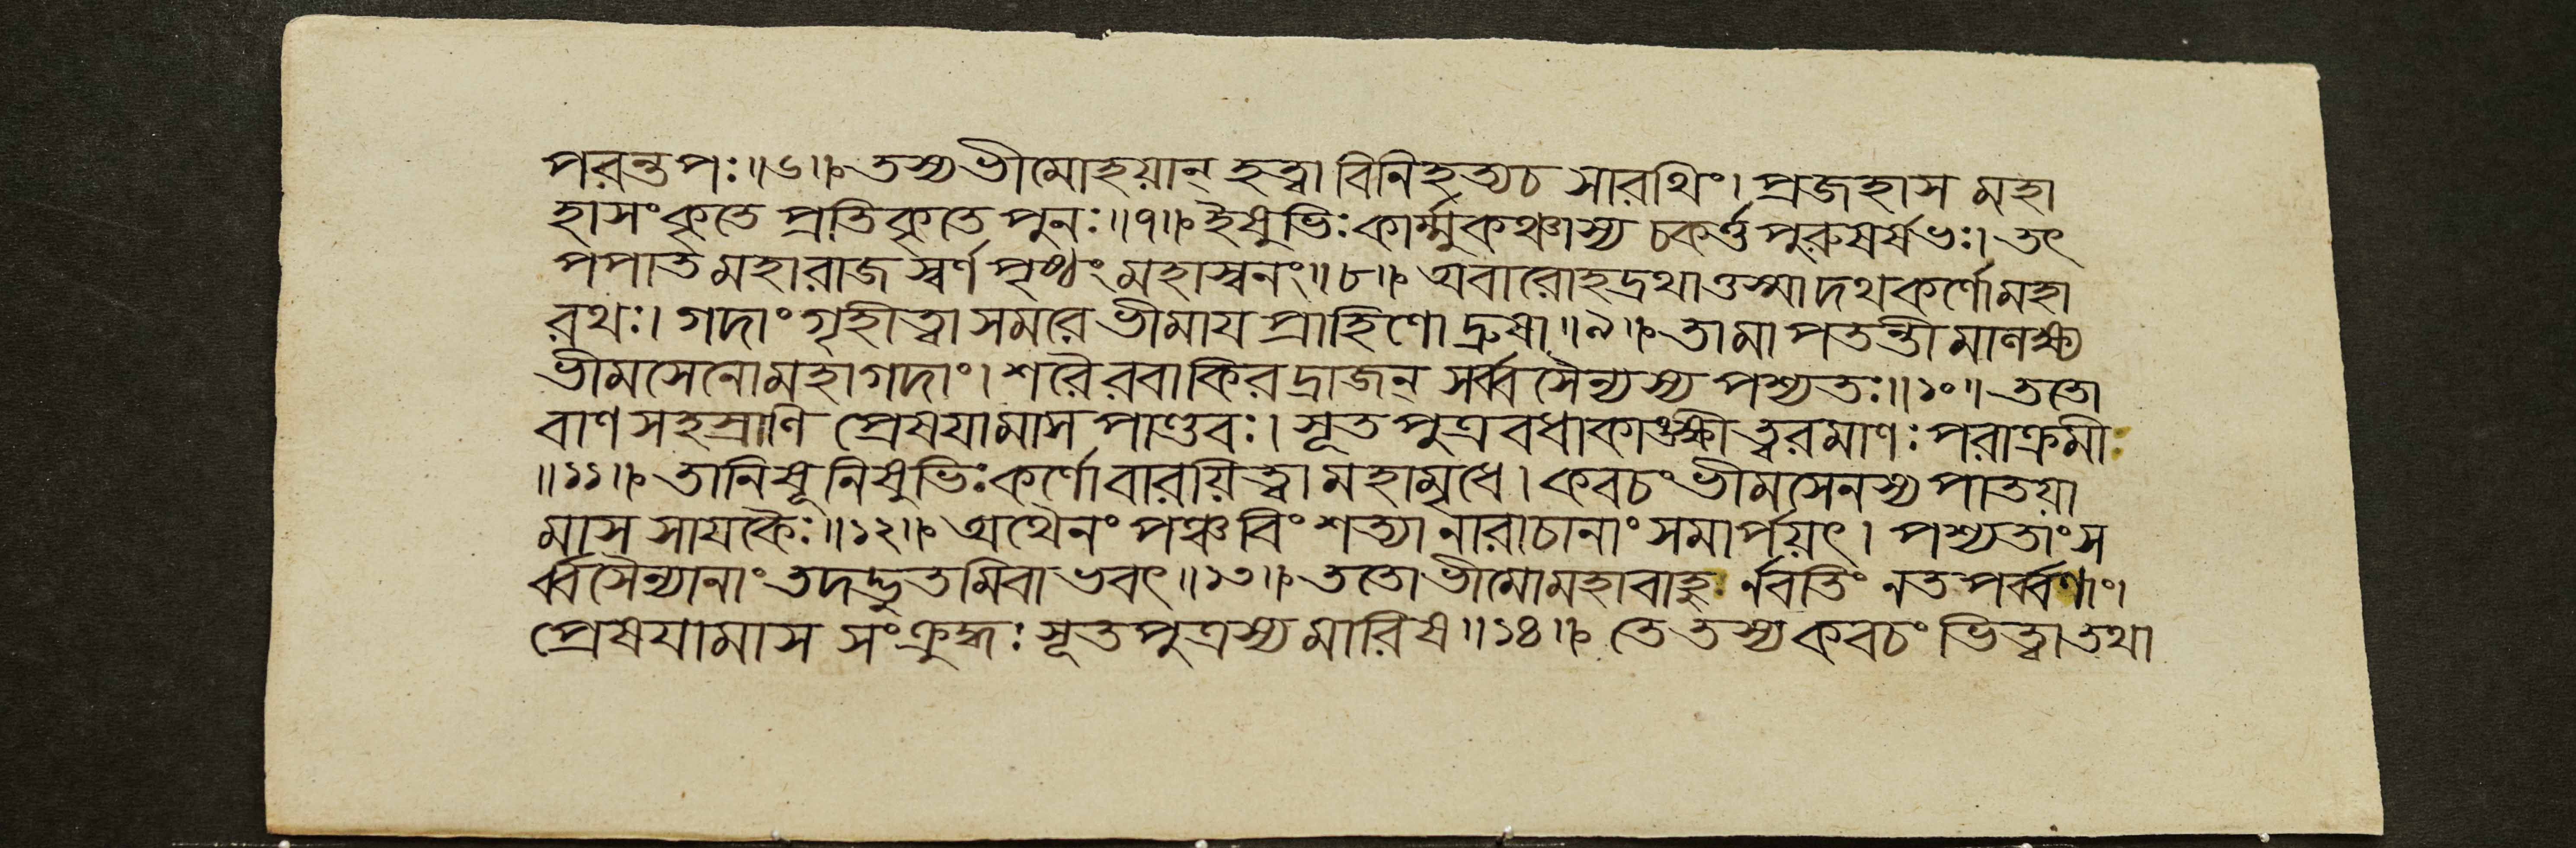 পরন্তপঃ॥৬॥ তস্যভীমোহয়ান্ হত্বা বিনিহত্যচ সারথিং। প্রজহাস মহা
হাসংকৃতে প্রতিকৃতে পুনঃ॥৭॥ ইষুভিঃকার্ম্মুকঞ্চাস্য চকর্ত্তপুরুষর্ষভঃ। তৎ
পপাতমহারাজ স্বর্ণপৃষ্ঠংমহাস্বনং॥৮॥ অবারোহদ্রথাত্তস্মাদথকর্ণোমহা
রথঃ। গদাংগৃহীত্বাসমরে ভীমায প্রাহিণোদ্রুষা॥৯॥ তামাপতন্তীমালক্ষ্য
ভীমসেনোমহাগদাং। শরৈরবাকিরদ্রাজন্ সর্ব্বসৈন্যস্য পশ্যতঃ॥১০॥ ততো
বাণসহস্রাণি প্রেষযামাস পাণ্ডবঃ। সূতপুত্রবধাকাঙ্ক্ষীত্বরমাণঃপরাক্রমী
॥১১॥ তানিষূনিষুভিঃকর্ণোবারয়িত্বামহামৃধে। কবচংভীমসেনস্য পাতয়া
মাস সাযকৈঃ॥১২॥ অথৈনংপঞ্চবিংশত্যানারাচানাংসমার্পয়ৎ। পশ্যতাংস
র্ব্বসৈন্যানাংতদদ্ভুতমিবাভবৎ॥১৩॥ ততোভীমোমহাবাহুর্নবতিংনতপর্ব্বণাং।
প্রেষযামাস সংক্রুদ্ধঃসূতপুত্রস্যমারিষ॥১৪॥ তেতস্যকবচংভিত্বাতথা